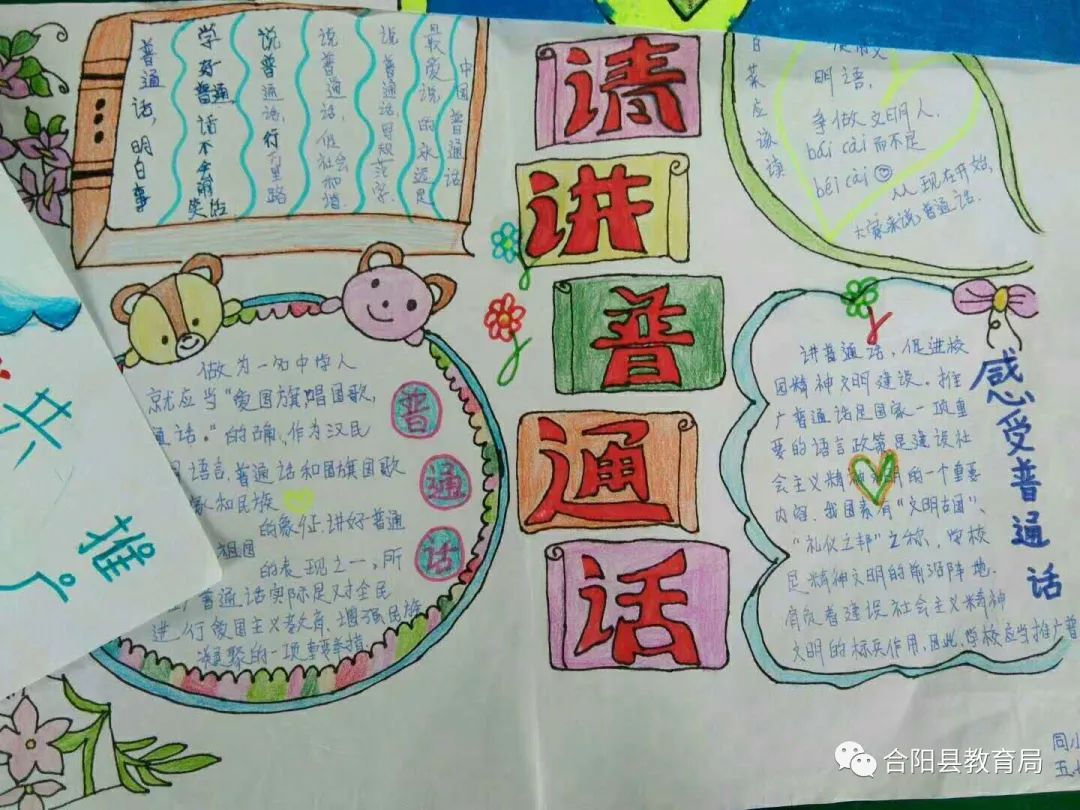 普通话，明白事
学好普通话不会闹笑话
说普通话，行万里路
说普通话，促社会和谐
说普通话，
最爱说的永远是
中国普通话
请
讲
普
通
话
白菜应该读
明语，
争做文明人.
bái cài 而不是
béi cài
从现在开始，
大家来说普通话.
做为一名中学人
就应当“爱国旗，唱国歌，
通话。”的确，作为汉民
语言，普通话和国旗国歌
和民族
的象征，讲好普通
祖国
的表现之一，所
普通话实际是对全民
进行爱国主义教育、增强民族
凝聚的一项重要举措
普
通
话
讲普通话，促进校
园精神文明建设。推
广普通话是国家一项重
要的语言政策是建设社
会主义精神文明的一个重要
内容。我国素有“文明古国”、
“礼仪之邦”之称，学校
是精神文明的前沿阵地.
肩负着建设社会主义精神
文明的标兵作用，因此，学校应当推广普
感受普通话
共
推
广
同小
五
合阳县教育局